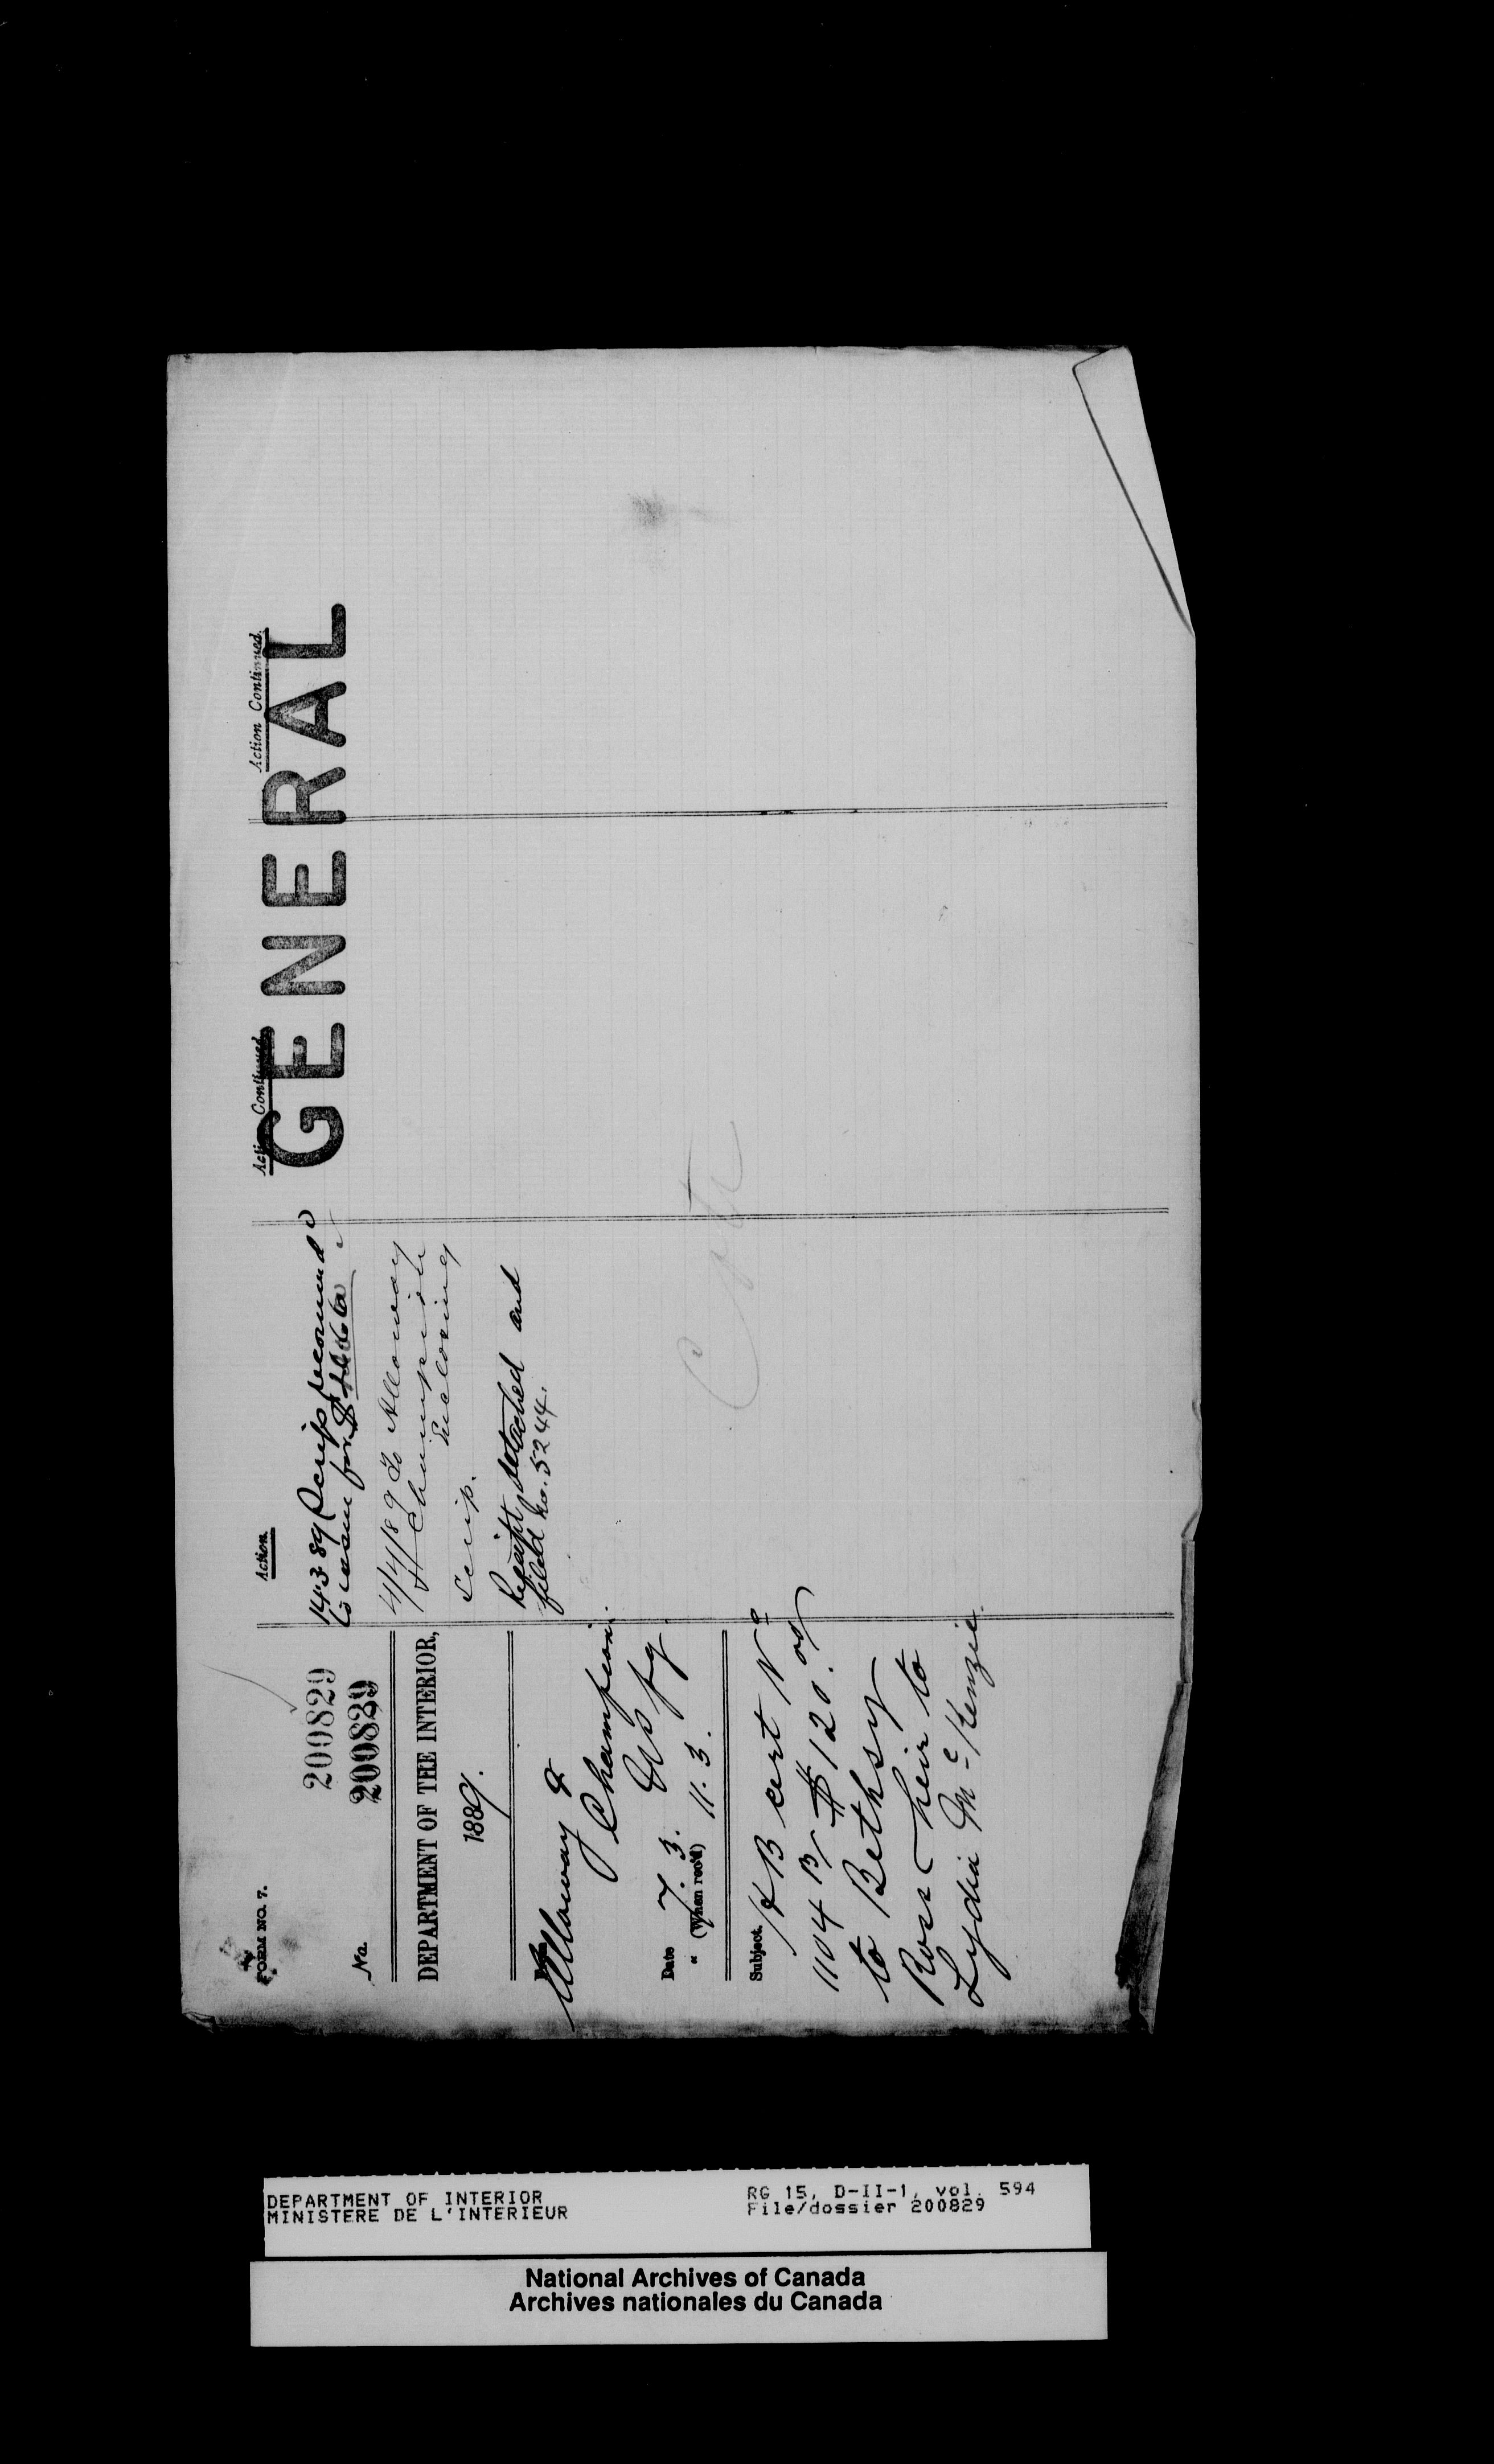 FORM NO. 7.
200829
No. 200829
DEPARTMENT OF THE INTERIOR,
1889.
Alloway &
Champion
Wpg
Date 7. 3.
" (When rec'd) 11. 3.
Subject. HB cert No
1104 B $120.00
to Bethsy
Ross heir to
Lydia McKenzie
Action.
14.3.89 Scrip recommd
to issue for $
4/4/89 To Alloway
& Champion
Enclosing
Scrip.
Receipt detached and
filed No. 5244.
Action Continued.
Action Continued.
GENERAL
DEPARTMENT OF INTERIOR
MINISTERE DE L'INTERIEUR
RG 15, D-II-1, vol. 594
File/dossier 200829
National Archives of Canada
Archives nationales du Canada